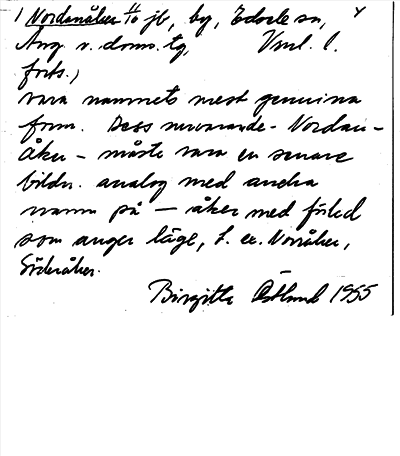 1) Nordanåker 11/6 jb, by, Edsele sn, Y
Ång v. doms. tg, Vnl. l.
forts.)
vara namnets mest genuina
form. Dess nuvarande - Nordan-
åker - måste vara en senare
bildn. analog med andra
namn på - åker med förled
som anger läge, t. ex. Norråker,
Söderåker.
Birgitta Östlund 1955